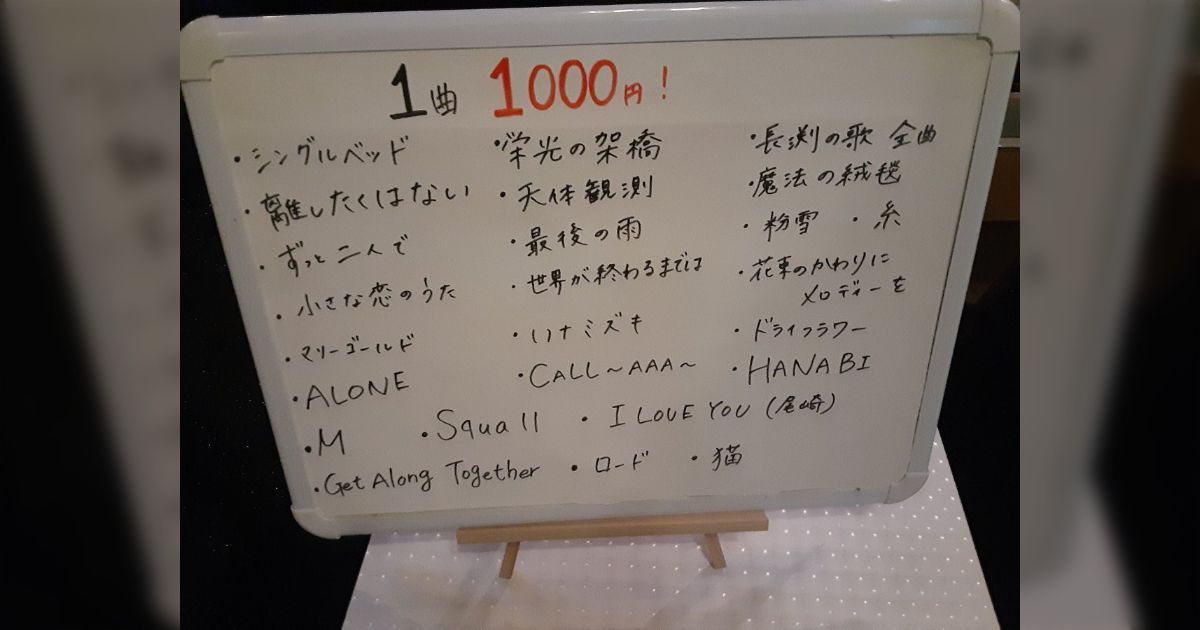 1曲 1000円!
・シングルベッド ・栄光の架橋 ・長渕の歌 全曲
・離したくはない ・天体観測 ・魔法の絨毯
・ずっと二人で ・最後の雨 ・粉雪 ・糸
・小さな恋のうた ・世界が終わるまでは ・花束のかわりに
メロディーを
・マリーゴールド ・ハナミズキ ・ドライフラワー
・ALONE ・CALL~AAA~ ・HANABI
・M ・Squall ・I LOVE YOU (尾崎)
・Get Along Together ・ロード ・猫